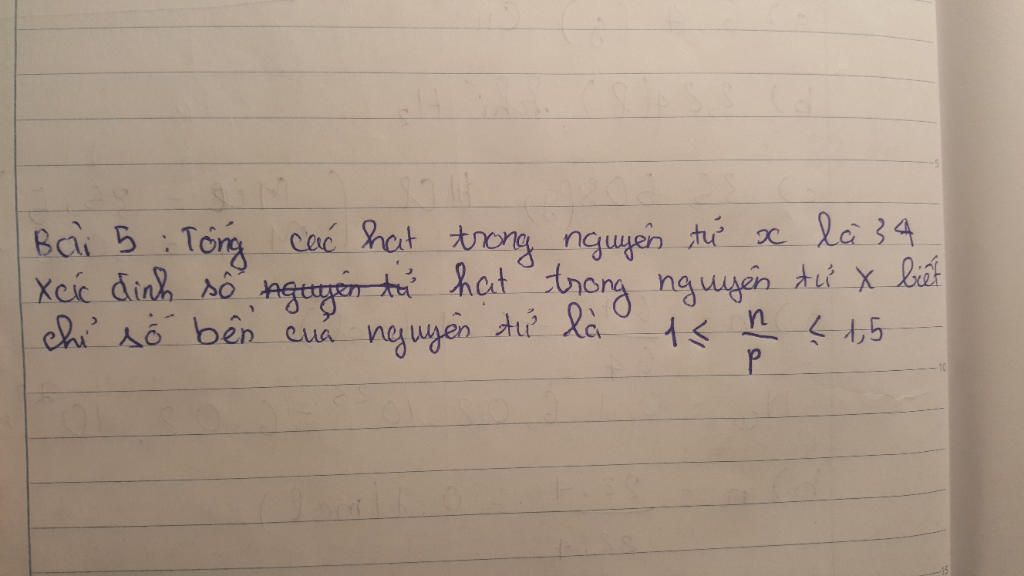 Bài 5 : Tổng các hạt trong nguyên tử x là 34
xác định số nguyên tử hạt trong nguyên tử X biết
chỉ số bền của nguyên tử là 1 ≤ n/p ≤ 1,5